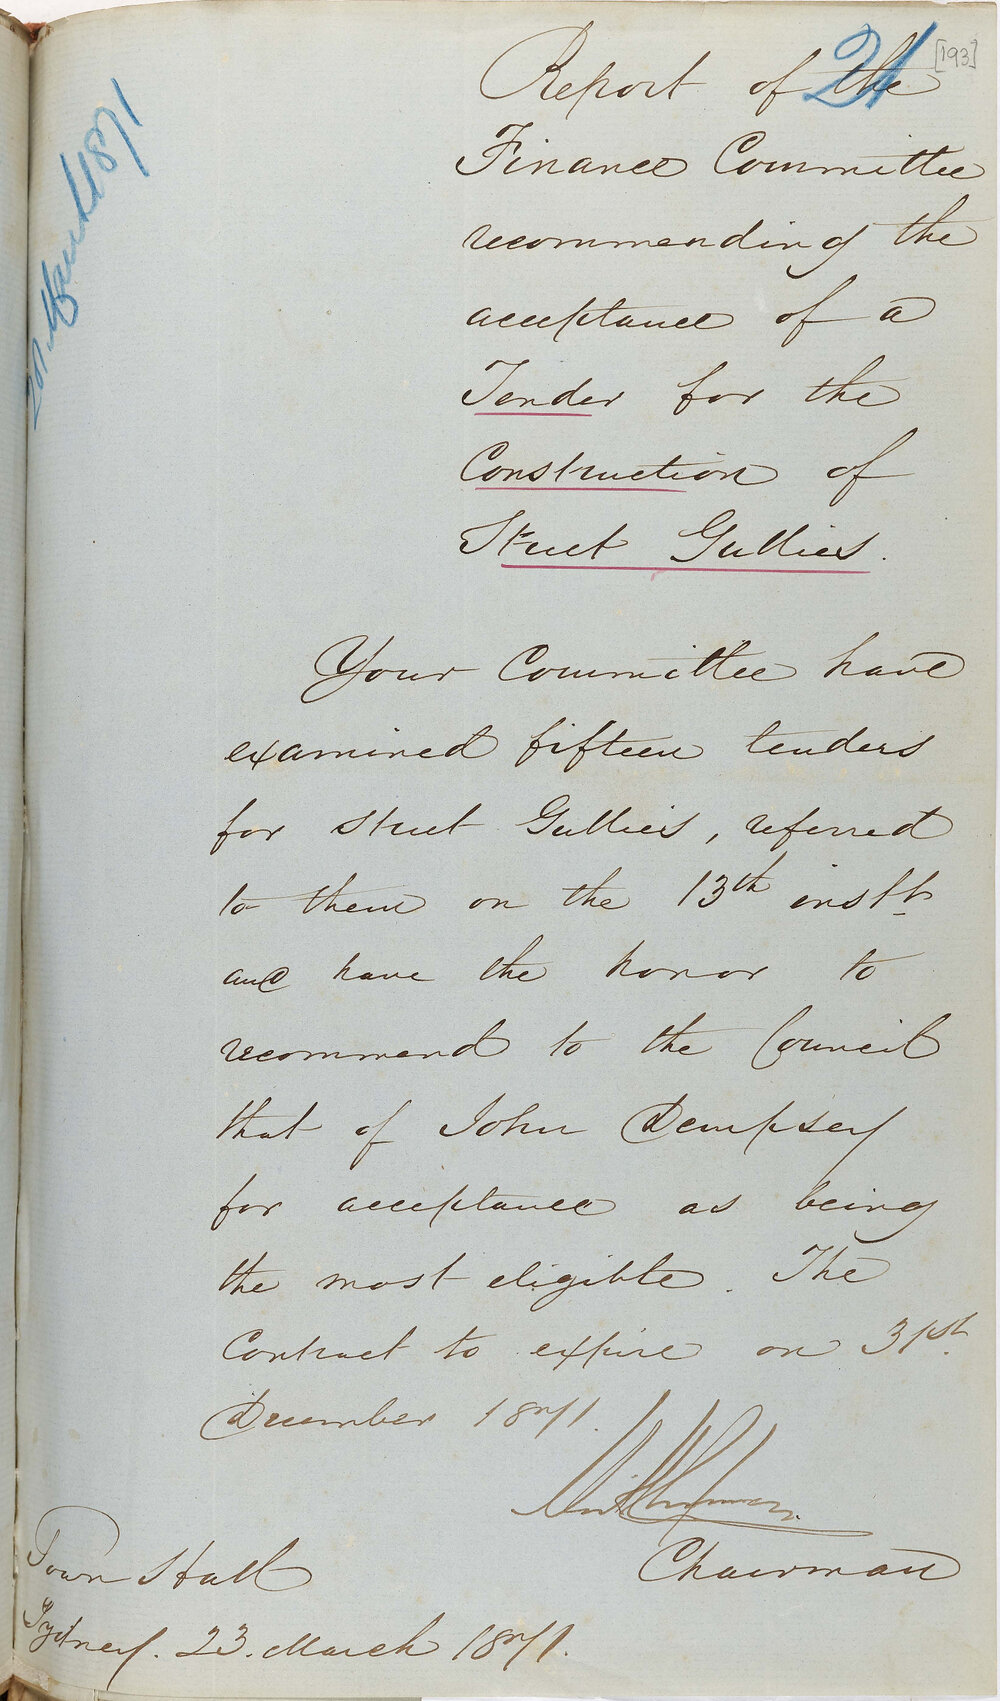 [193]
21
March 1871
Report of the
Finance Committee
recommending the
acceptance of a
Tender for the
Construction of
Street Gullies.
Your Committee have
examined fifteen tenders
for street Gullies, referred
to them on the 13th instt.
and have the honor to
recommend to the Council
that of John Dempsey
for acceptance as being
the most eligible. The
Contract to expire on 31st.
December 1871.
Chairman
Town Hall
Sydney. 23. March 1871.